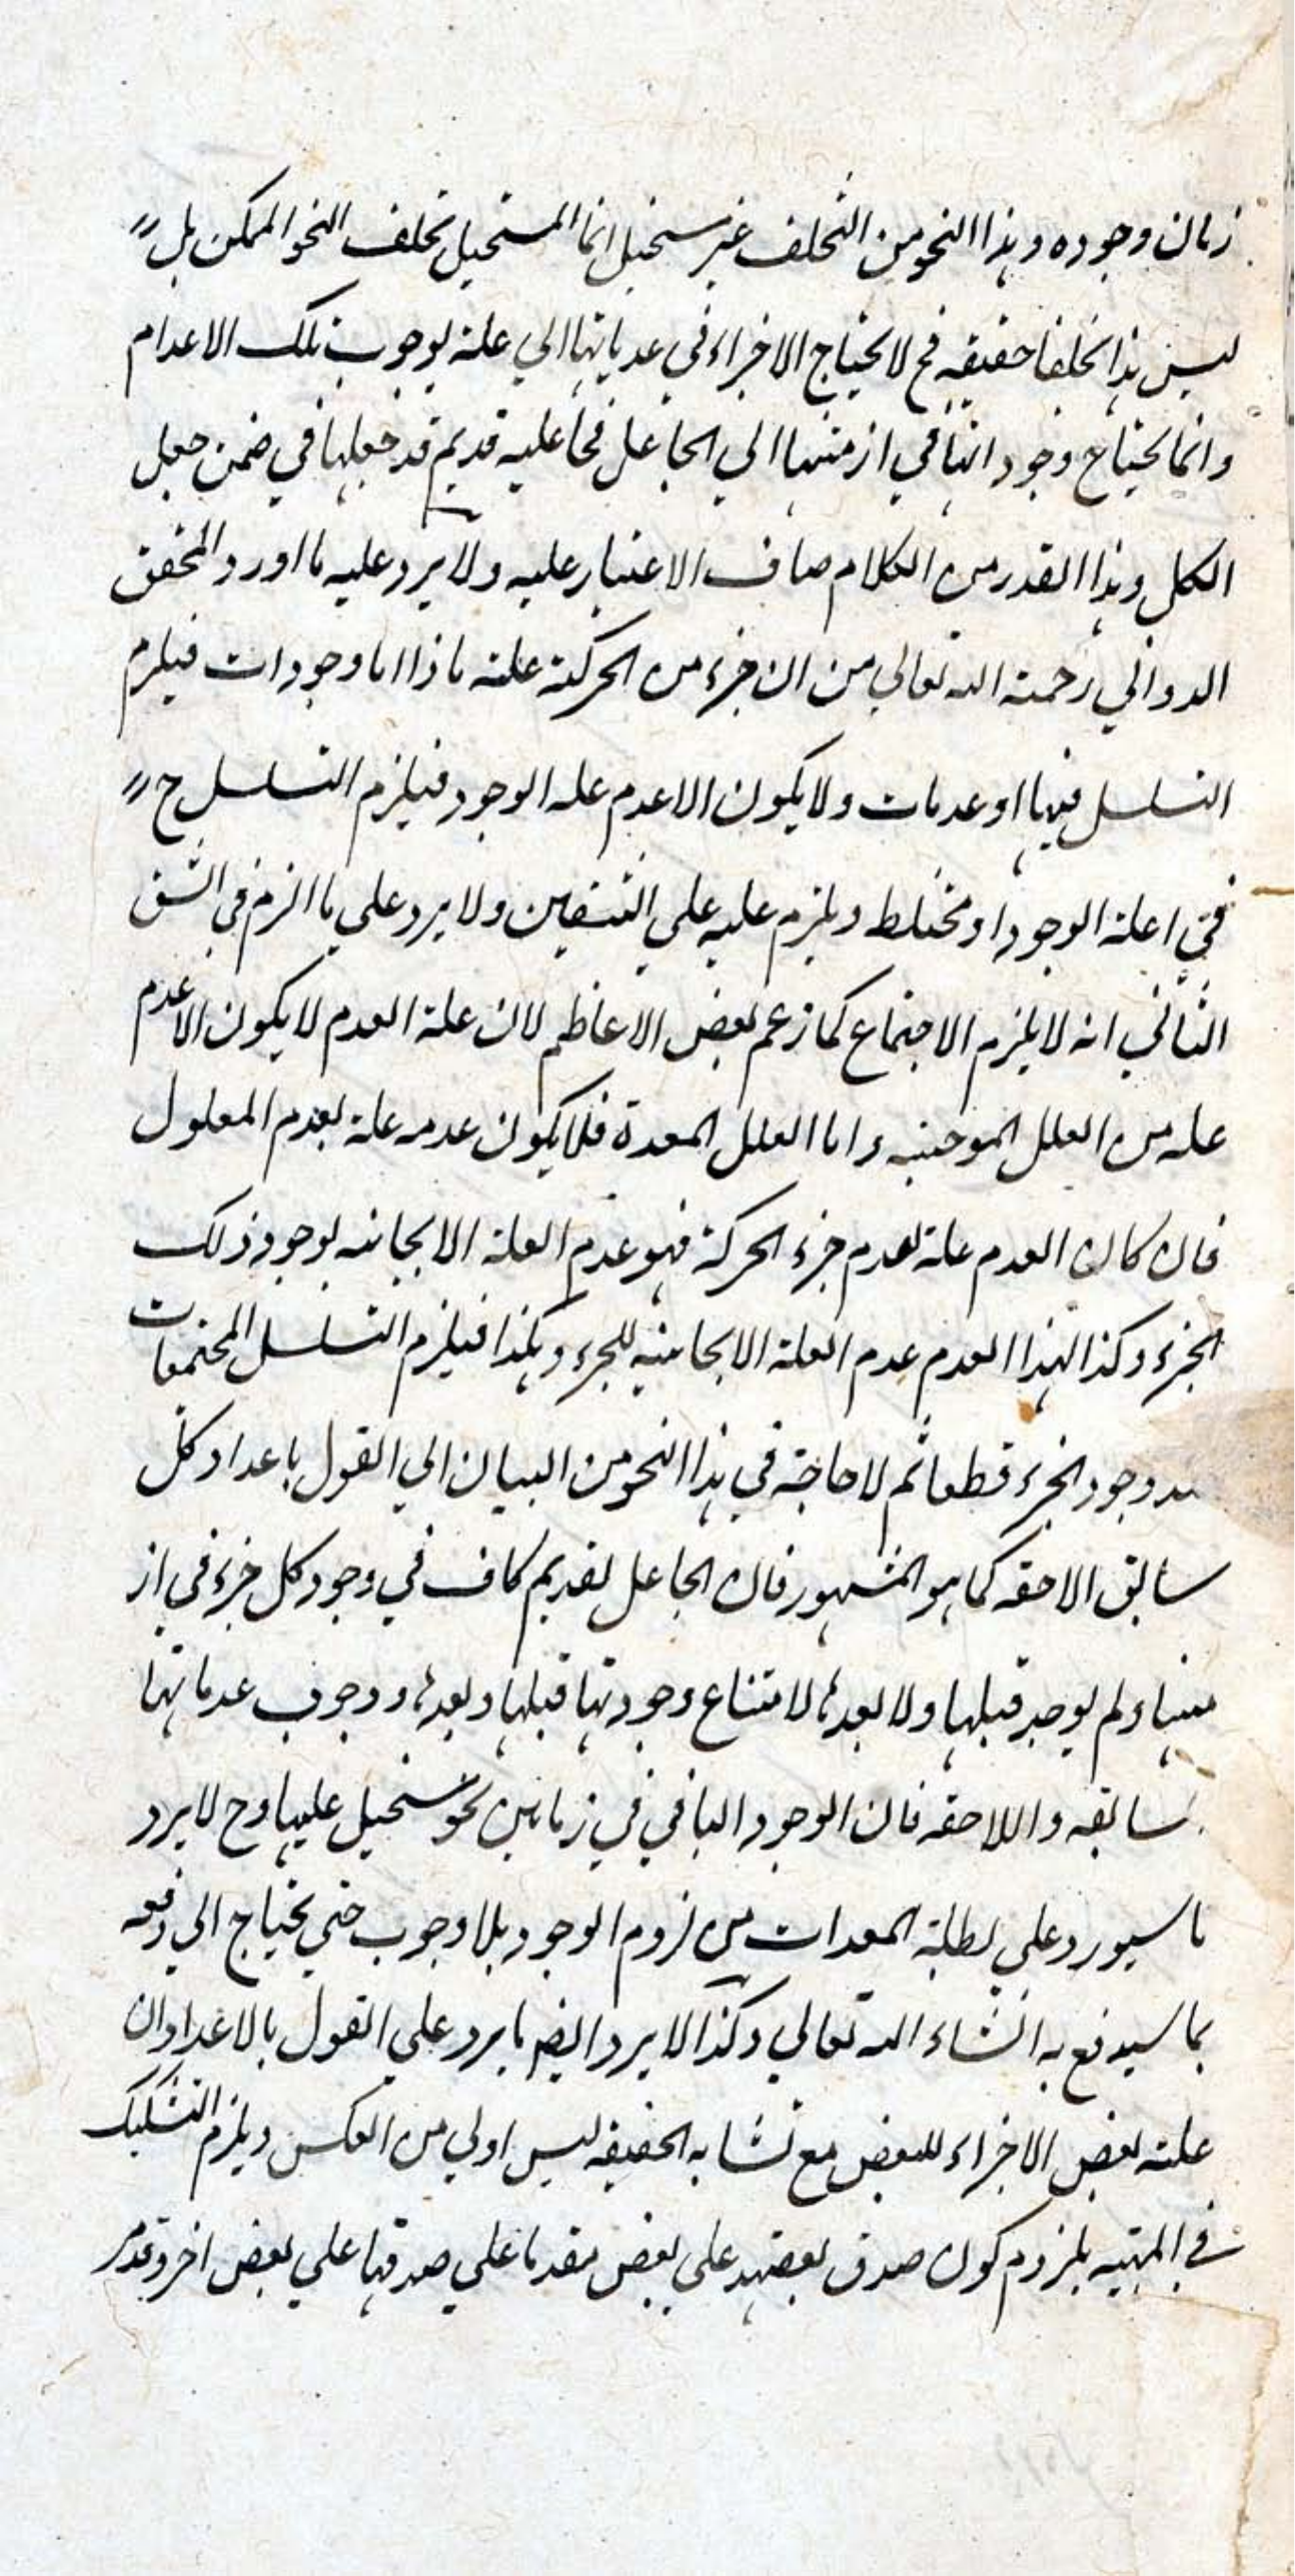 زمان وجوده وهذا النحو من التخلف غير مستحيل انما المستحيل تخلف النحو الممكن بل
ليس هذا تخلفا حقيقه فح لا يحتاج الاجزاء في عدماتها الي علة لوجوب تلك الاعدام
وانما يحتاج وجوداتها في ازمنتها الي الجاعل فجاعليه قديم قد جعلها في ضمن جعل
الكل وهذا القدر من الكلام صاف لاغبار عليه ولا يرد عليه ما اورد المحقق
الدواني رحمته الله تعالي من ان جزء من الحركة علته ماذا اما وجودات فيلزم
التسلسل فيها او عدمات ولا يكون الا عدم عله الوجود فيلزم التسلسل ح
في اعلة الوجود او مختلط ويلزم عليه علي النقيضين ولا يرد علي ما الزم في الشق
الثاني انه لا يلزم الاجتماع كما زعم بعض الاعاظم لان علة العدم لا يكون الا عدم
عله من العلل الموجبيه واما العلل المعدة فلا يكون عدمه علة لعدم المعلول
فان كان العدم علة لعدم جزء الحركة فهو عدم العلة الايجابيه لوجود ذلك
الجزء وكذا لهذا العدم عدم العلة الايجابيه للجزء وهكذا فيلزم التسلسل المجتمعات
وجود الجزء قطعا ثم لا حاجة في هذا النحو من البيان الي القول باعداد كل
سابق الاحقه كما هو المشهور فان الجاعل لقديم كاف في وجود كل جزء في از
منها ولم يوجد قبلها ولا بعدها لامتناع وجودتها قبلها وبعدها ووجوب عدماتها
سابقه واللاحقه فان الوجود الباقي في زمانين نحو مستحيل عليها وح لا يرد
ما سيورد علي المعدات من لزوم الوجود بلا وجوب حتي يحتاج الي دفعه
بما سيدفع به انشاء الله تعالي وكذا لا يرد ايضا ما يرد علي القول بالاعداد ان
علته بعض الاجزاء للبعض مع تشابه الحقيقه ليس اولي من العكس ويلزم التشكيك
في المهيه بلزوم كون صدق بعضها علي بعض مقدما علي صدقها علي بعض اخر وتقدم